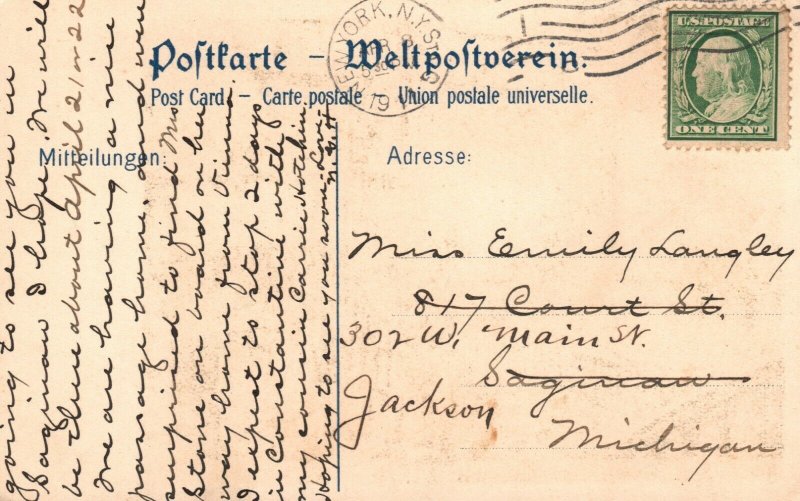 Postkarte – Weltpostverein.
Post Card – Carte postale – Union postale universelle.
NEW YORK, N.Y.
19
U.S. POSTAGE
ONE CENT
Mitteilungen:
Adresse:
Miss Emily Langley
817 Court St.
302 W. Main St.
Saginaw
Jackson
Michigan
going to see you in
Saginaw I hope. We will
be there about April 21 or 22
We are having a nice
passage home, and were
surprised to find Miss
Stone on board on her
way home from Vienna
I expect to stop 2 days
in Constantine with
my cousin Carrie Hotchin
Hoping to see you soon. Love